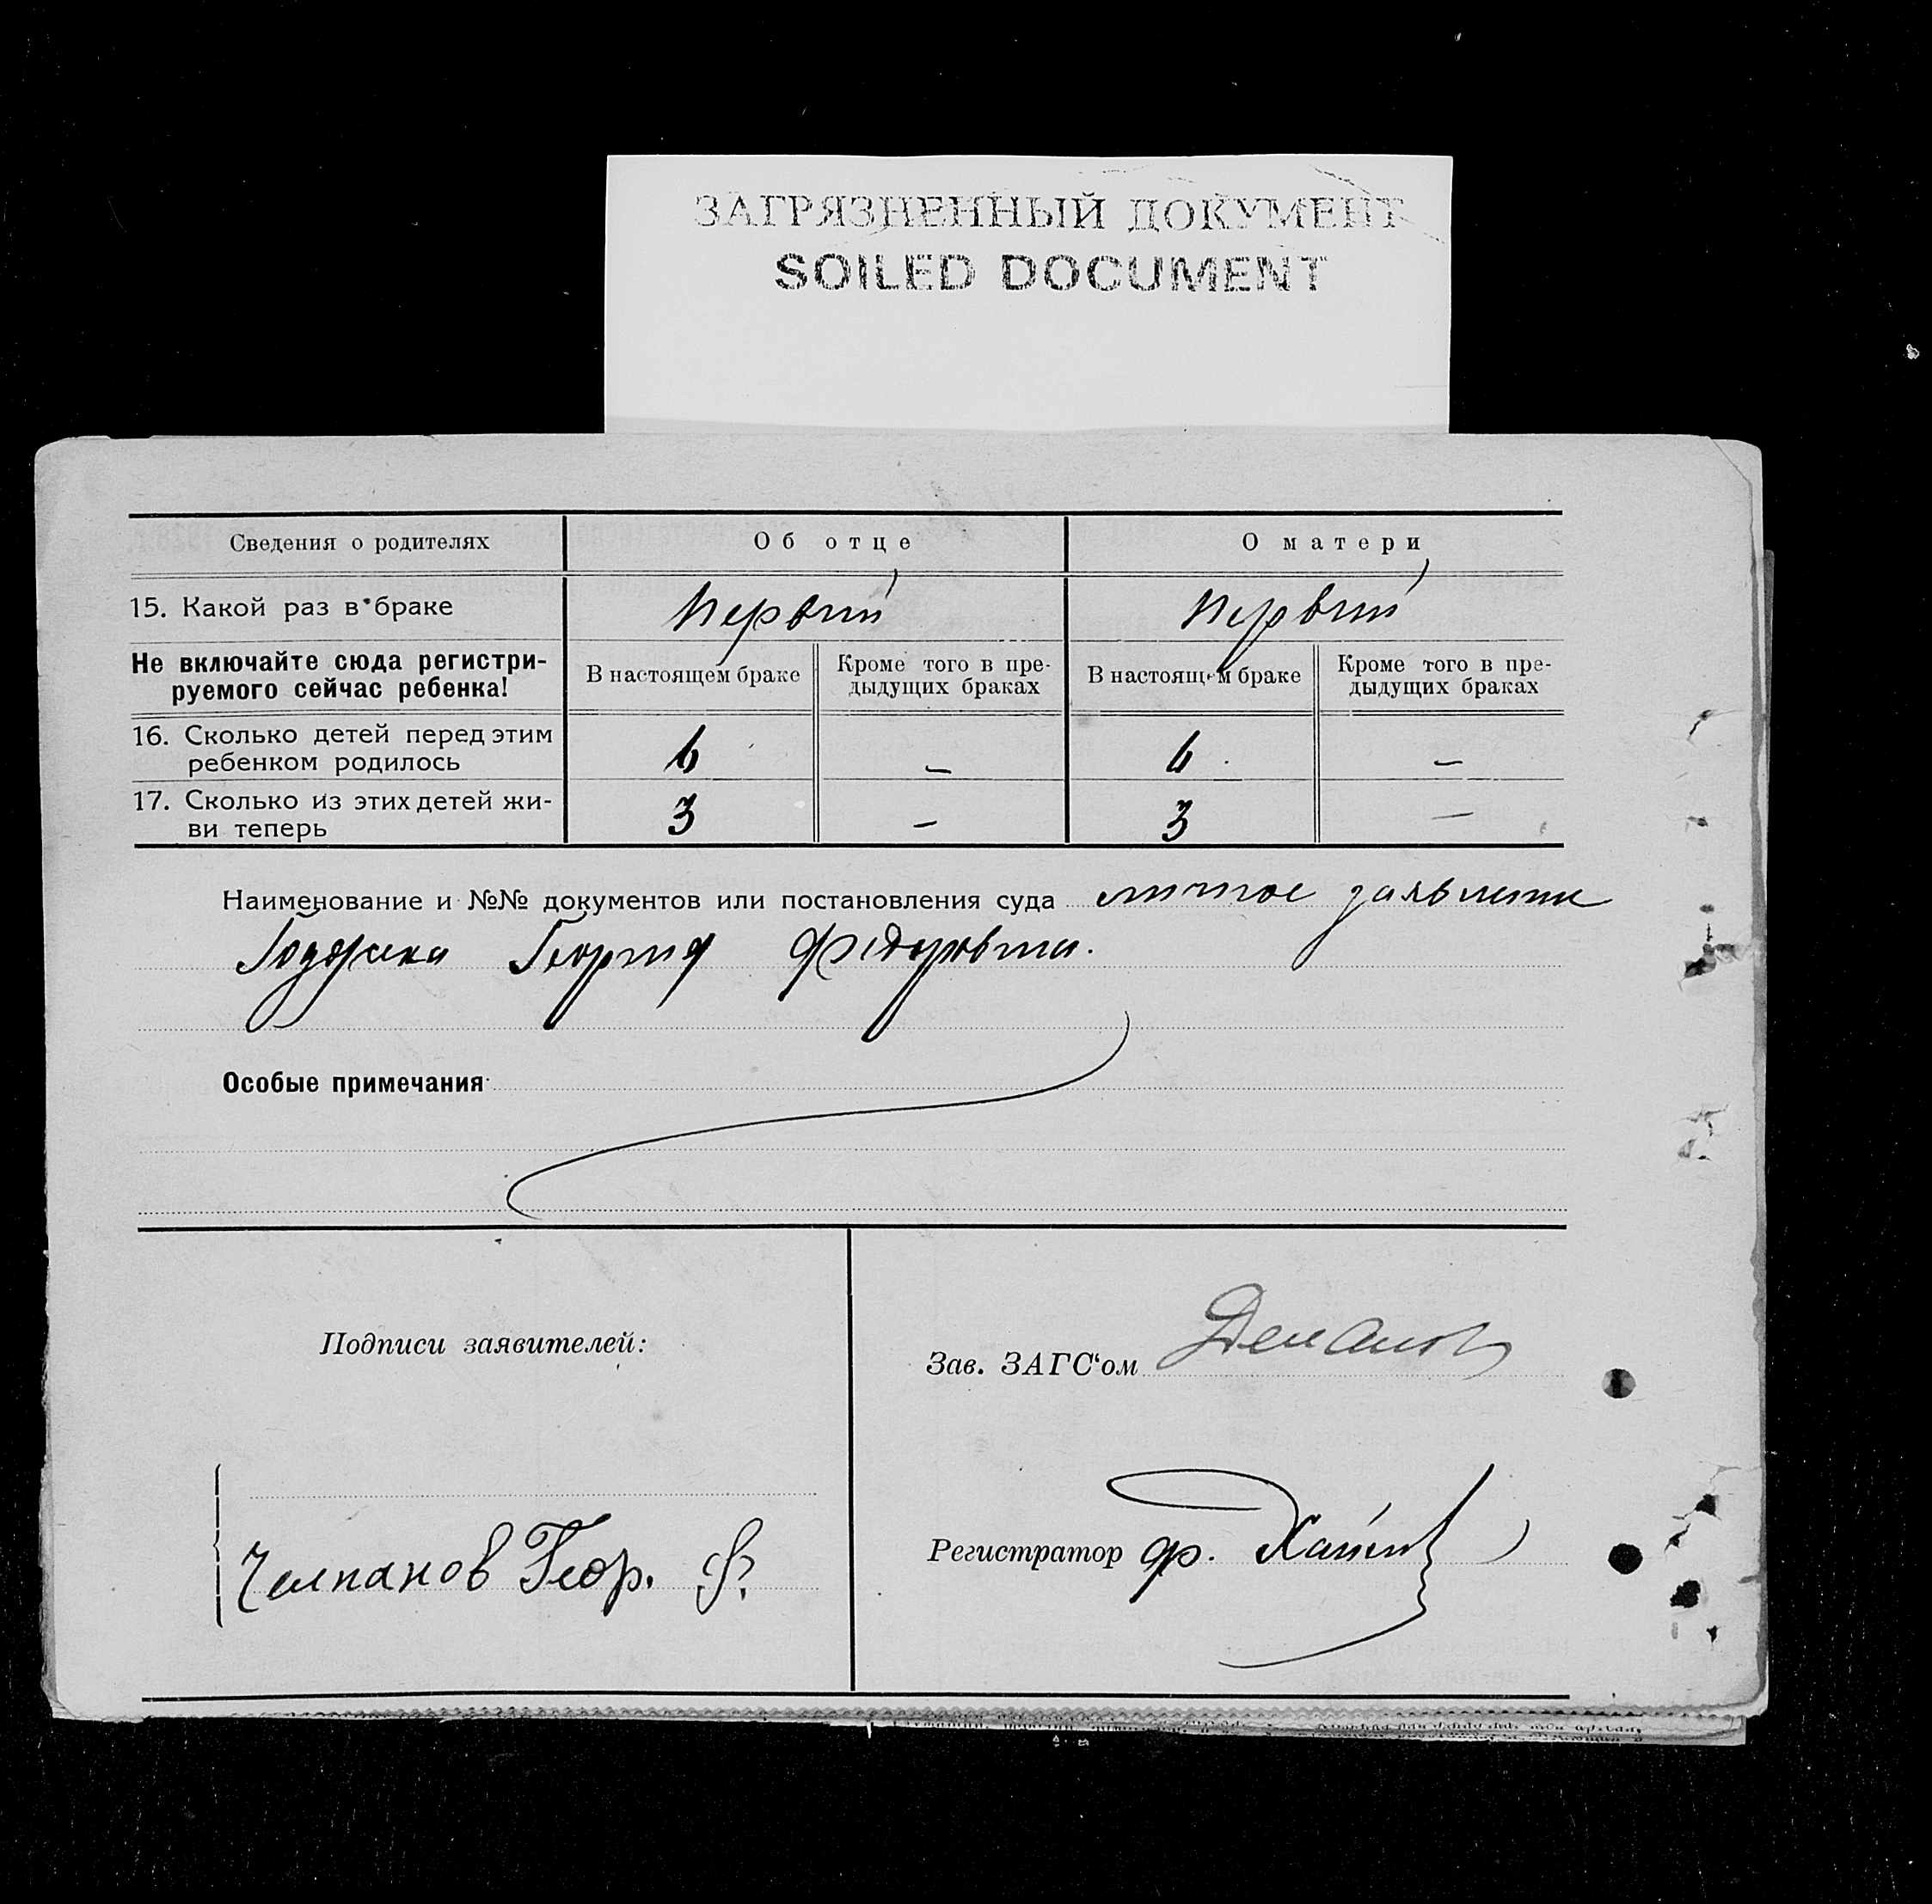 ЗАГРЯЗНЕННЫЙ ДОКУМЕНТ
SOILED DOCUMENT
Сведения о родителях Об отце О матери
15. Какой раз в браке Первый Первый
Не включайте сюда регистри-
руемого сейчас ребенка!
В настоящем браке Кроме того в пре-
дыдущих браках
В настоящем браке Кроме того в пре-
дыдущих браках
16. Сколько детей перед этим
ребенком родилось 6 – 6 –
17. Сколько из этих детей жи-
ви теперь 3 – 3 –
Наименование и №№ документов или постановления суда личное заявление
Георгия Федоровича.
Особые примечания
Подписи заявителей:
Зав. ЗАГС‘ом
Челпанов Геор. Ф.
Регистратор